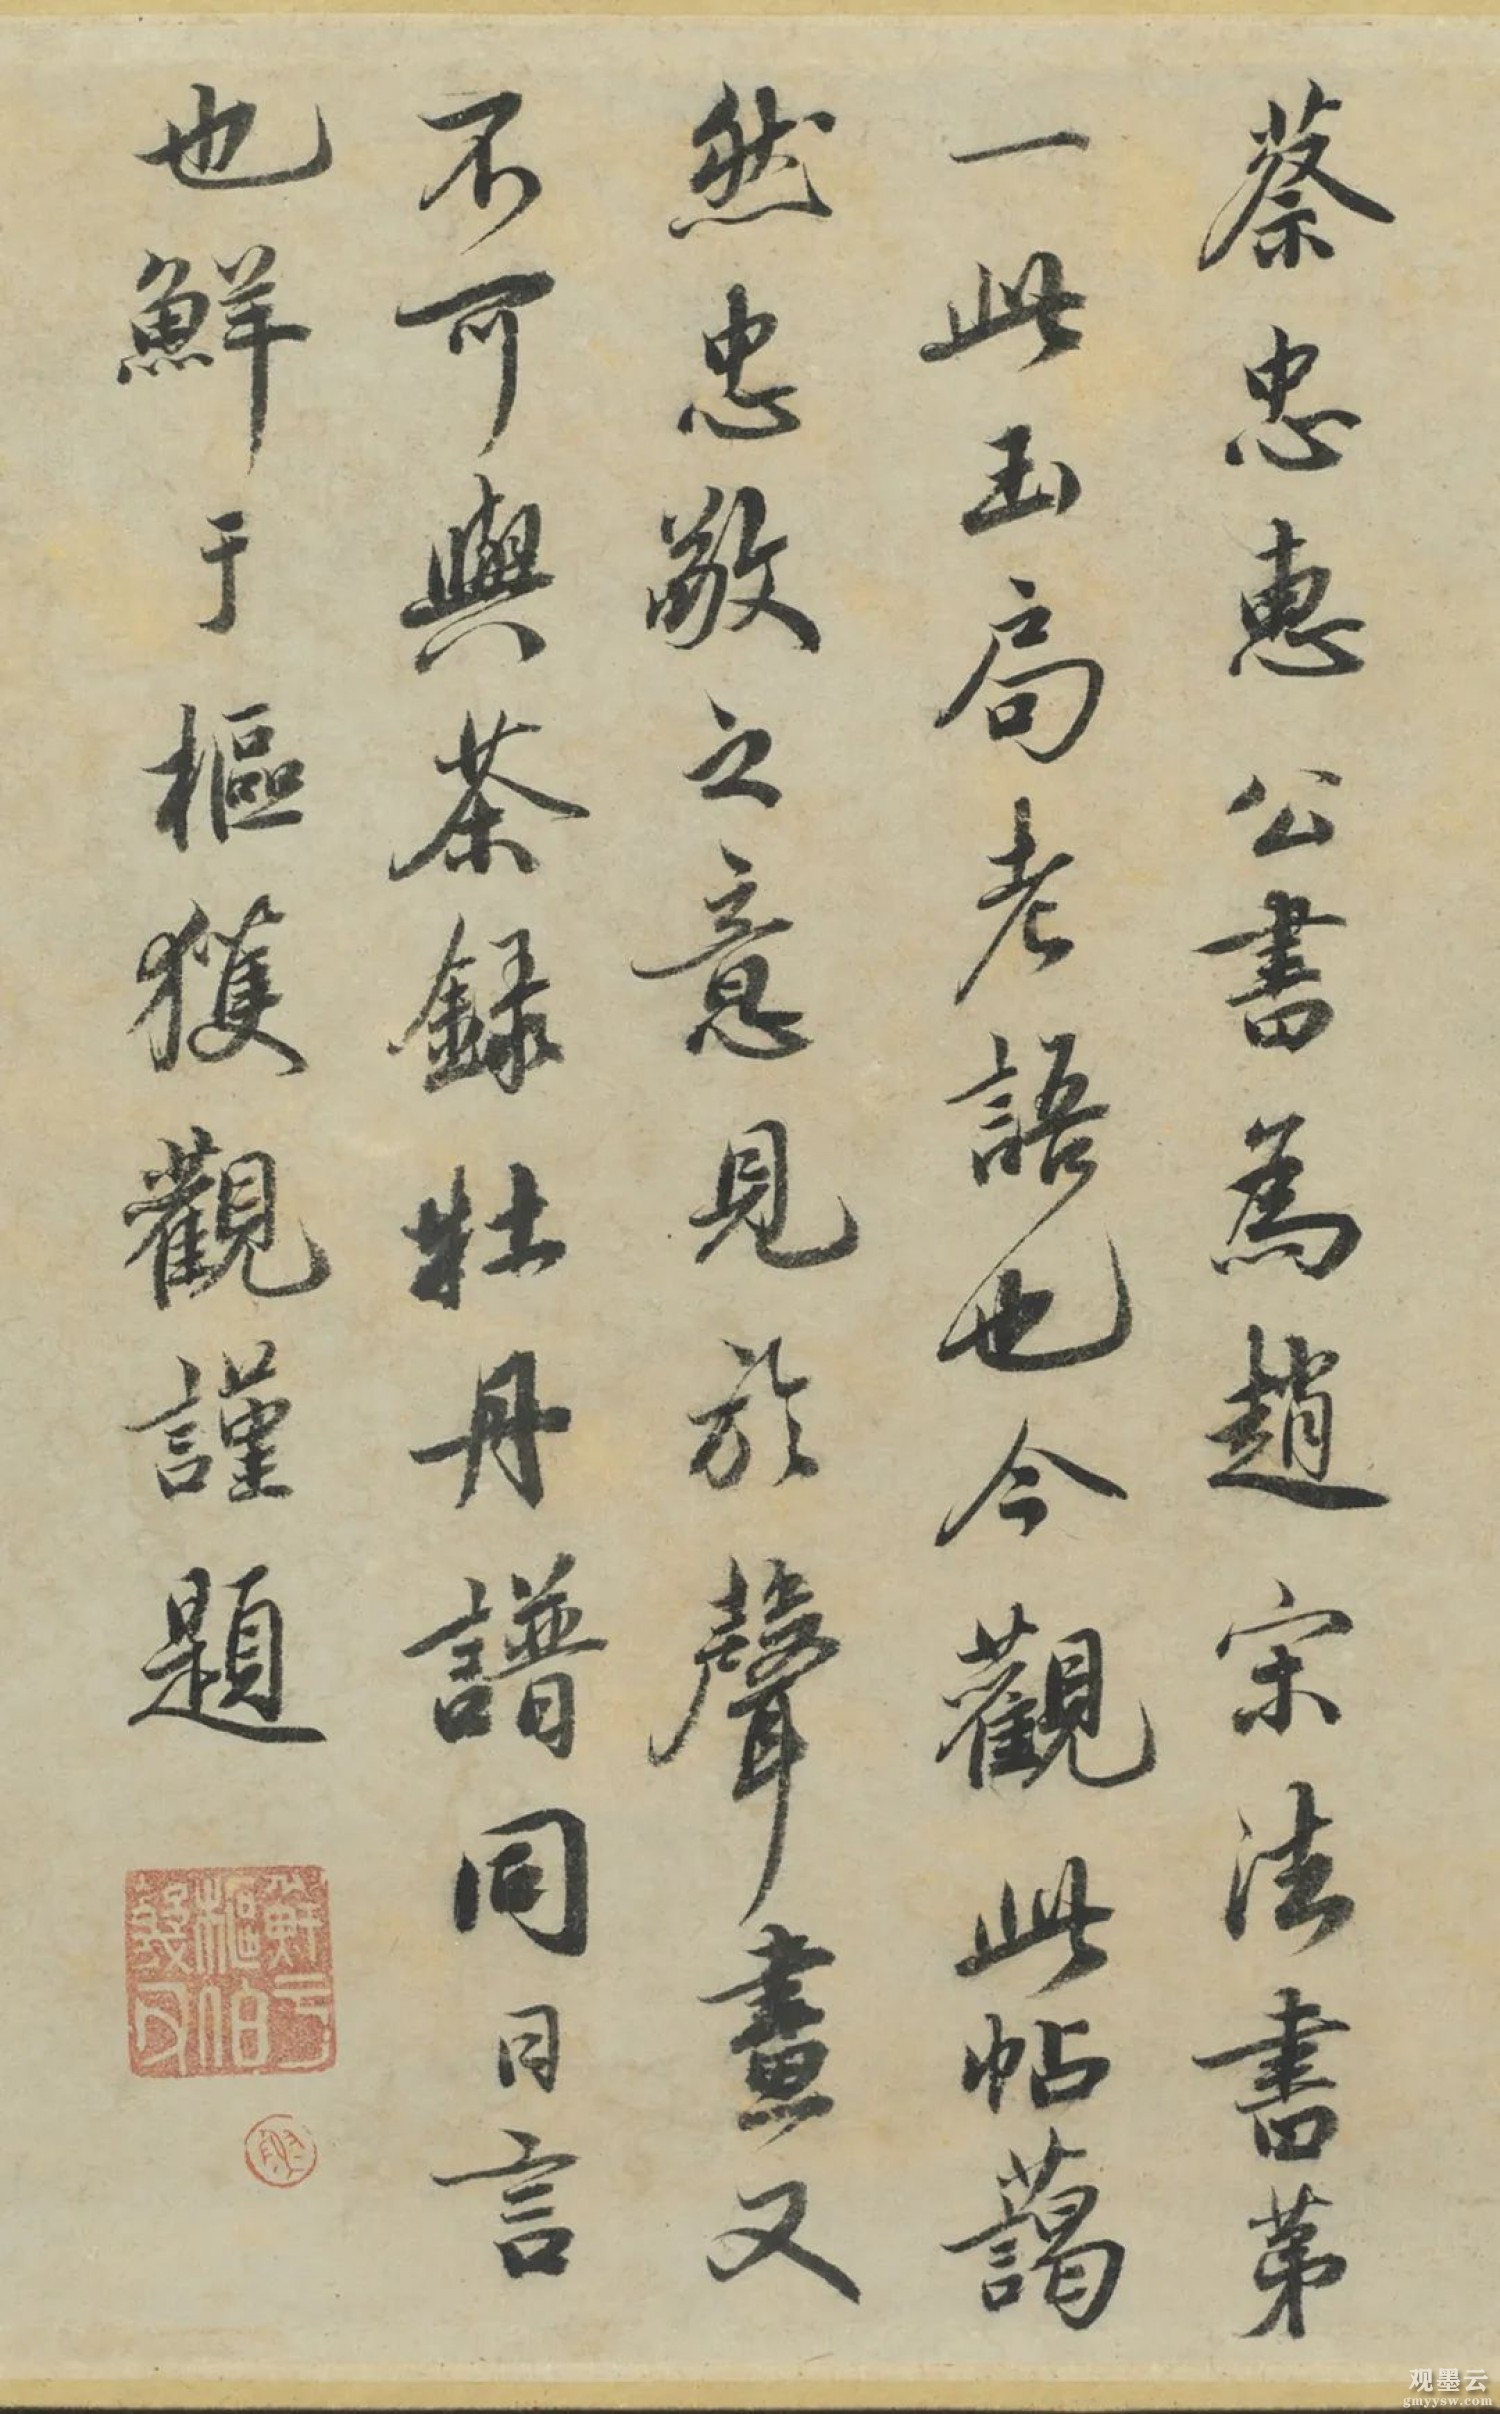 蔡忠惠公書為趙宋法書第
一此玉局老語也今觀此帖藹
然忠敬之意見於聲畫又
不可與茶録牡丹譜同日言
也鮮于樞獲觀謹題
鮮于
樞伯
幾父
观墨云
gmyysw.com